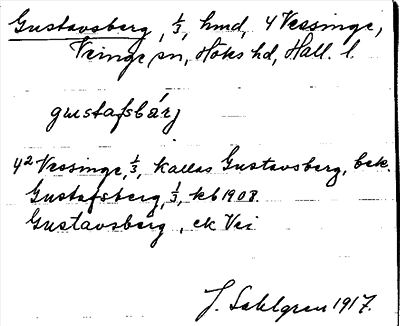 Gustavsberg, 1/3, hmd, 4 Vessinge,
Veinge sn, Höks hd, Hall. l.
gustafsbárj
4² Vessinge, 1/3, kallas Gustavsberg, bek.
Gustafsberg, 1/3, kb 1908.
Gustavsberg, ek Vei
J. Sahlgren 1917.